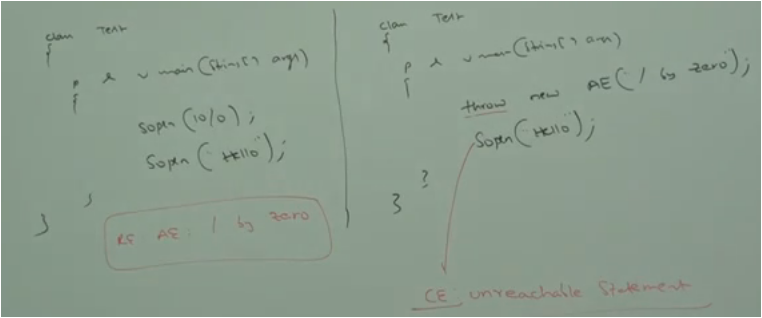 class Test
{
p s v main(String[] args)
{
sopln(10/0);
sopln("Hello");
}
}
RE AE: / by zero
class Test
{
p s v main(String[] args)
{
throw new AE("/ by zero");
sopln("Hello");
}
}
CE: unreachable statement